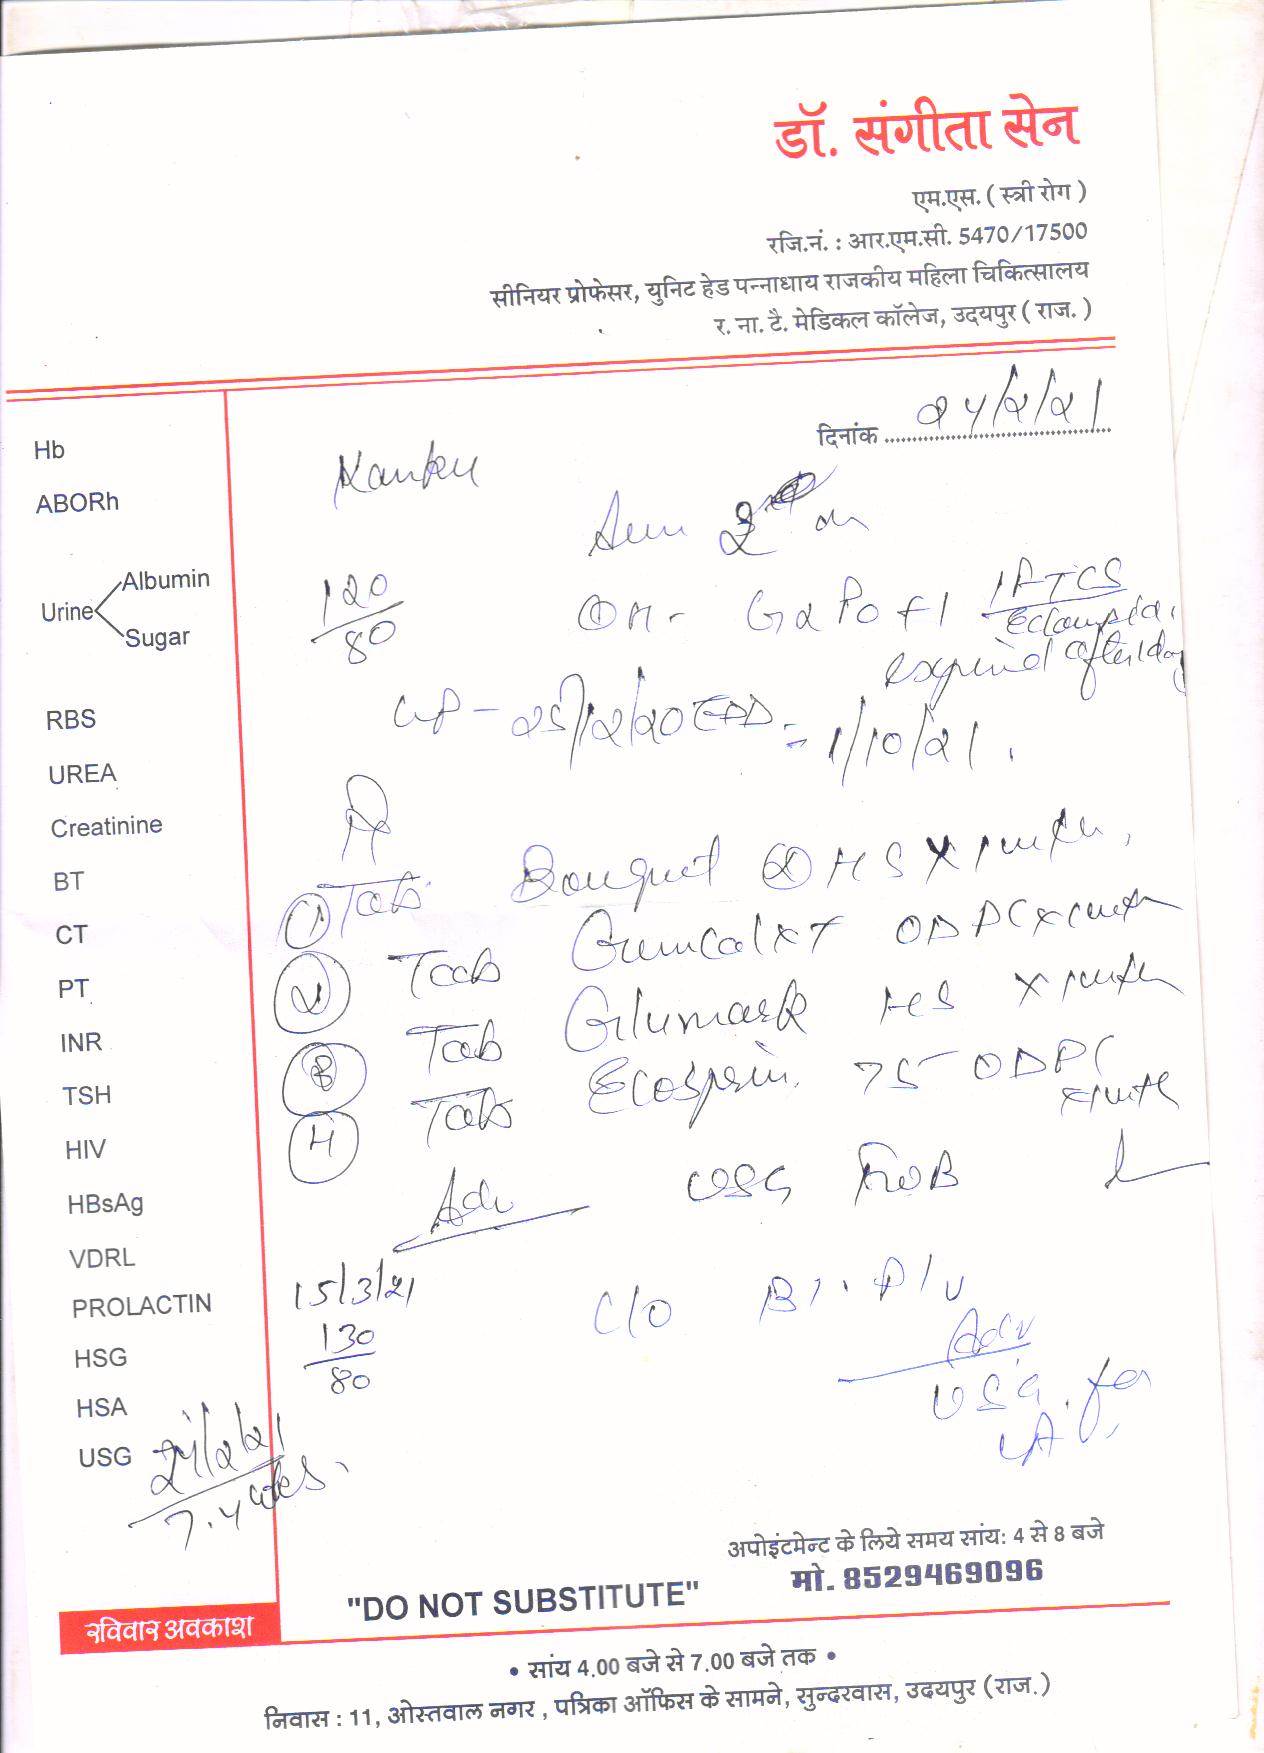 डॉ. संगीता सेन
एम.एस. ( स्त्री रोग )
रजि.नं. : आर.एम.सी. 5470/17500
सीनियर प्रोफेसर, युनिट हेड पन्नाधाय राजकीय महिला चिकित्सालय
र. ना. टै. मेडिकल कॉलेज, उदयपुर ( राज. )
दिनांक 24/2/21
Hb
Kanku
ABORh
Albumin
Urine
Sugar
120/80
OH- G2P0+1 1FTCS
Eclampsia
expired after 1 day
25/12/20 EDD = 1/10/21
RBS
UREA
Creatinine
BT
CT
PT
INR
TSH
HIV
HBsAg
VDRL
PROLACTIN
HSG
HSA
USG 24/2/21
7.4 wks.
① Tab. HS X 1
② Tab ODPC X 1
③ Tab HS X 1
④ Tab Ecosprin 75 ODPC
Adv USG
15/3/21
130/80
C/O P/V
Adv
USG for
अपोइंटमेन्ट के लिये समय सांय: 4 से 8 बजे
मो. 8529469096
"DO NOT SUBSTITUTE"
रविवार अवकाश
• सांय 4.00 बजे से 7.00 बजे तक •
निवास : 11, ओस्तवाल नगर , पत्रिका ऑफिस के सामने, सुन्दरवास, उदयपुर (राज.)